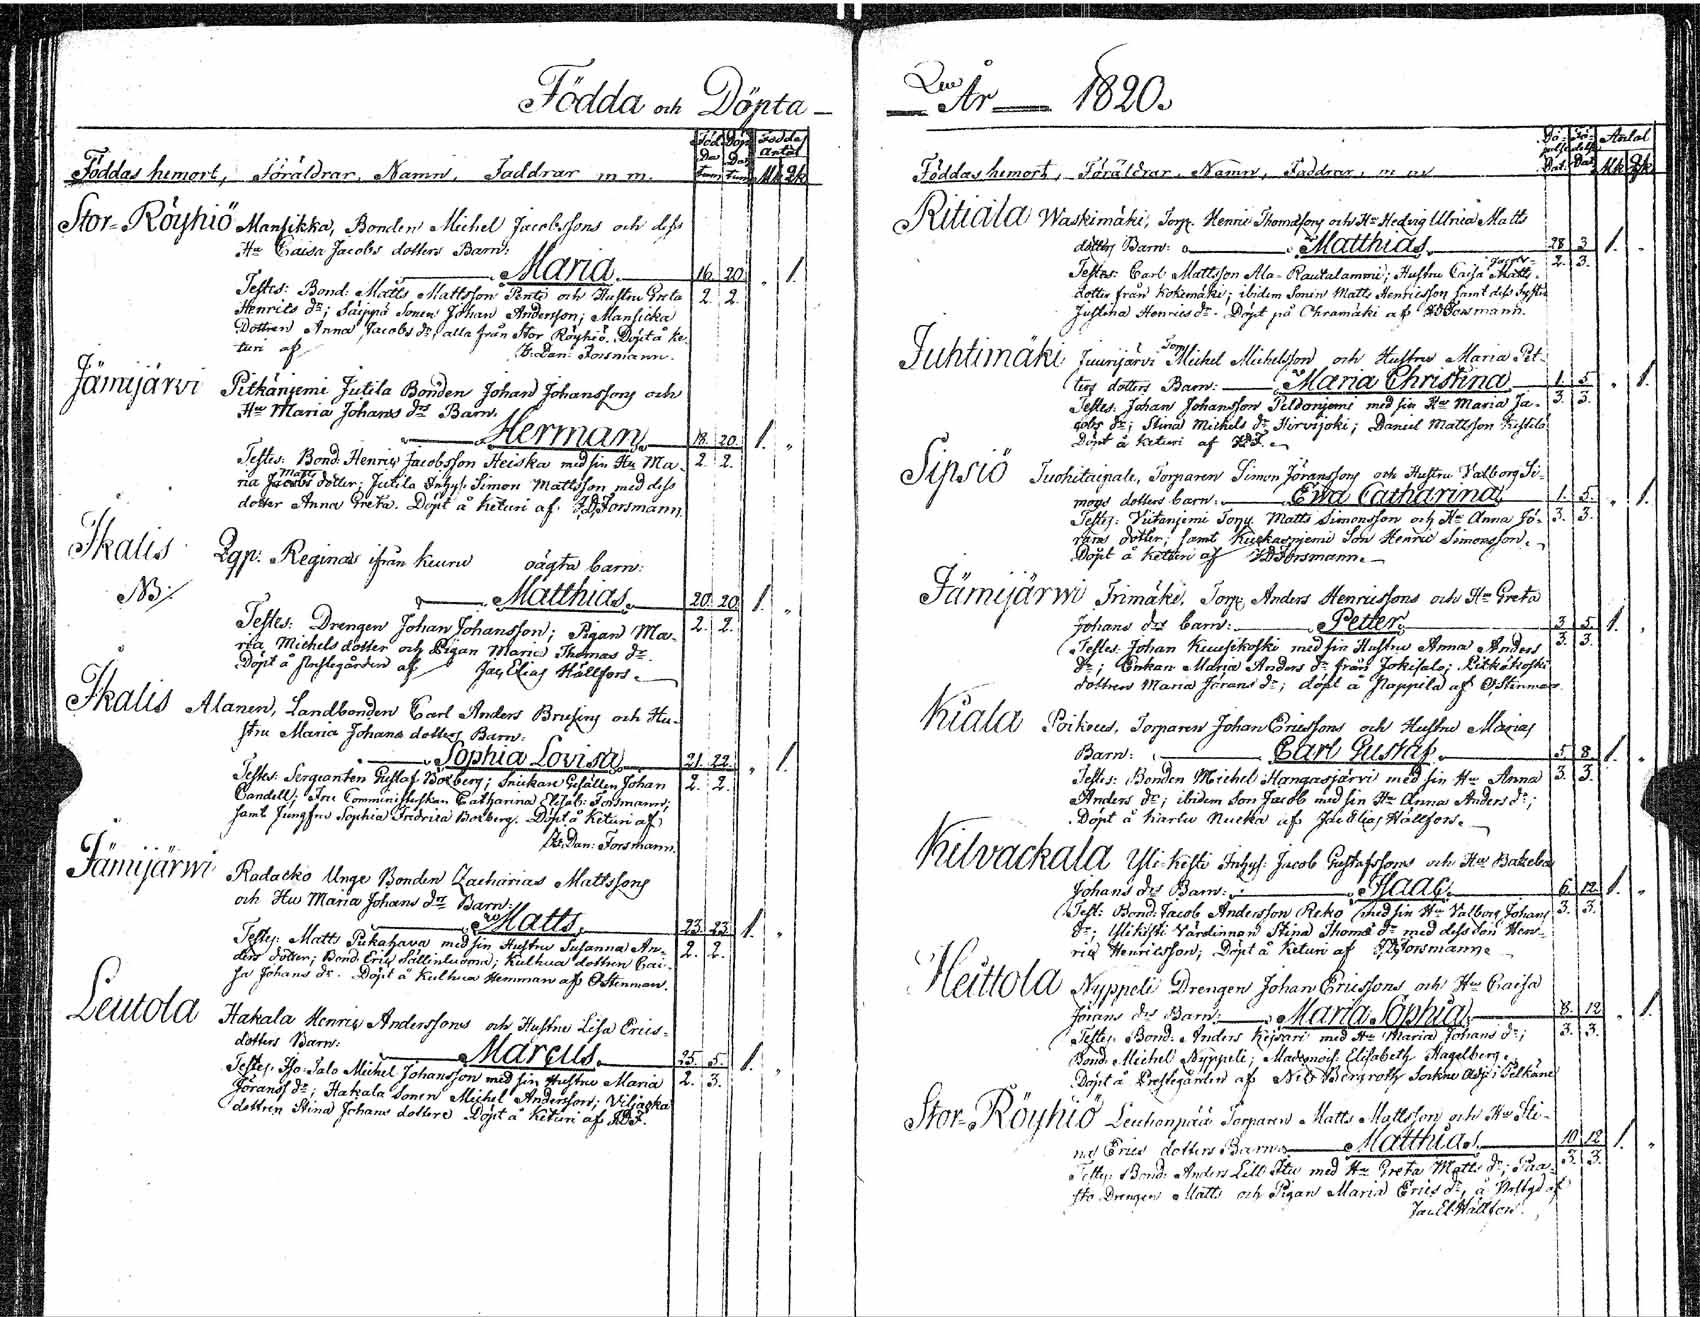 Födda och Döpta
Föddas hemort, Föräldrar, Namn, Faddrar m m.
Föd. Da tum
Döp. Da tum
Födda antal
Mk Qk
Stor-Röyhiö Mansikka, Bonden Michel Jacobssons och dess
Hu Caisa Jacobs dotters Barn:
Maria 16. 20. „ 1
Testes: Bond: Matts Mattsson Pento och Hustru Greta 2. 2.
Henrics dr; Säippä Sonen Johan Andersson; Mansicka
Dottren Anna Jacobs dr, alla från Stor Röyhiö. Döpt å Ke-
turi af Z. Dan: Forsmann.
Jämijärvi Pitkäniemi Jutila Bonden Johan Johanssons och
Hu Maria Johans drs Barn.
Herman 18. 20. 1. „
Testes: Bond. Henric Jacobsson Heiska med sin Hu Ma- 2. 2.
Matts
ria Jacobs dotter; Jutila Inhys: Simon Mattsson med dess
dotter Anna Greta. Döpt å Keturi af Z.D. Forsmann.
Ikalis Qgp: Reginas ifrån Kuuru oägta barn:
NB:/.
Matthias 20. 20. 1. „
Testes: Drengen Johan Johansson; Pigan Ma- 2. 2.
ria Michels dotter och Pigan Maria Thomas dr.
Döpt å Prestegården af Jac Elias Hällfors.
Ikalis Alanen, Landbonden Carl Anders Brusins och Hu-
stru Maria Johans dotters Barn:
Sophia Lovisa 21. 22. „ 1.
Testes: Sergeanten Gustaf Boxberg; Snickare Gesällen Johan 2. 2.
Candell; Fru Comministerskan Catharina Elisab: Forsmann;
samt Jungfru Sophia Fredrica Boxberg. Döpt å Keturi af
Z. Dan: Forsmann.
Jämijärwi Radacko Unge Bonden Zacharias Mattssons
och Hu Maria Johans drs Barn:
Matts 23. 23. 1. „
Testes: Matts Pukahava med sin Hustru Susanna An- 2. 2.
ders dotter; Bond Eric Sällinluoma; Kulhua dottren Cai-
sa Johans dr. Döpt å Kulhua Hemman af O Stenman.
Leutola Hakala Henric Anderssons och Hustru Lisa Erics-
dotters Barn:
Marcus. 25. 5. 1. „
Testes: Iso-Salo Michel Johansson med sin Hustru Maria 2. 3.
Jörans dr; Hakala Sonen Michel Andersson; Viljacka
dottren Stina Johans dotter. Döpt å Keturi af ZDF.
År 1820.
Föddas hemort, Föräldrar, Namn, Faddrar, m m
Dat. Dat. Antal
Mk Qk
Ritiala Waskimäki, Torp. Henric Thomassons och Hu Hedvig Ulrica Matts
dotters Barn: Matthias 28 3 1. „
Jacobs
Testes: Carl Mattsson Ala-Rautalammi; Hustru Caisa Matts- 2. 3.
dotter från Kokemäki; ibidem Sonen Matts Henricsson samt dess Syster
Justina Henrics dr. Döpt på Ohramäki af ZDForsmann.
Juhtimäki Juurijärvi Michel Michelsson och Hustru Maria Pet-
ters dotters Barn: Maria Christina 1. 5. „ 1.
Testes: Johan Johansson Peldoniemi med sin Hu Maria Ja- 3. 3.
cobs dr; Stina Michels dr Hirvijoki; Daniel Mattsson
Döpt å Keturi af ZDF.
Sipsiö Tuohitaipale, Torparen Simon Jöranssons och Hustru Valborg Si-
mons dotters barn: Eva Catharina 1. 5. „ 1
Testes: Viitaniemi Torp. Matts Simonsson och Hu Anna Jö- 3. 3.
rans dotter; samt Kuckasniemi Son Henric Simonsson.
Döpt å Keturi af ZDForsmann.
Jämijärwi Trimäki, Torp. Anders Henricssons och Hu Greta
Johans drs barn: Petter. 3. 5. 1. „
Testes: Johan Kuusikoski med sin Hustru Anna Anders 3. 3.
dr; Enkan Maria Anders dr från Jokisalo; Pitkäkoski
dottren Maria Jörans dr; döpt å Nappila af OStenman.
Kiala Poikeus, Torparen Johan Ericssons och Hustru Marias
Barn: Carl Gustaf. 5. 8. 1. „
Testes: Bonden Michel Hangasjärvi med sin Hu Anna 3. 3.
Anders dr; ibidem Son Jacob med sin Hu Anna Anders dr;
Döpt å Karhu Nucka af Jac Elias Hällfors.
Kilvackala Yli-Kesti Inhys: Jacob Gustafssons och Hu
Johans drs Barn: Isaac. 6. 12. 1. „
Test: Bond: Jacob Andersson Reko med sin Hu Valborg Johans 3. 3.
dr; Ylikesti Värdinnan Stina Thoms dr med dess Son Hen-
ric Henricsson; Döpt å Keturi af ZDForsmann.
Heittola Nyppeli Drengen Johan Ericssons och Hu Caisa
Jörans drs Barn: Maria Sophia. 8. 12 „ 1.
Testes. Bond: Anders Keisari med Hu Maria Johans dr; 3. 3.
Bond. Michel Nyppeli; Mademois: Elisabeth Hagelberg.
Döpt å Prestegården af Nils Bergroth Sockne Adj: i Pelkäne
Stor-Röyhiö Leuhonpää Torparen Matts Mattsson och Hu Sti-
nas Erics dotters Barn: Matthias. 10 12 1. „
Testes: Bond: Anders Lill-Ihu med Hu Greta Matts dr; Paa- 3. 3.
sto Drengen Matts och Pigan Maria Erics dr, å af
Jac El Hällfors.